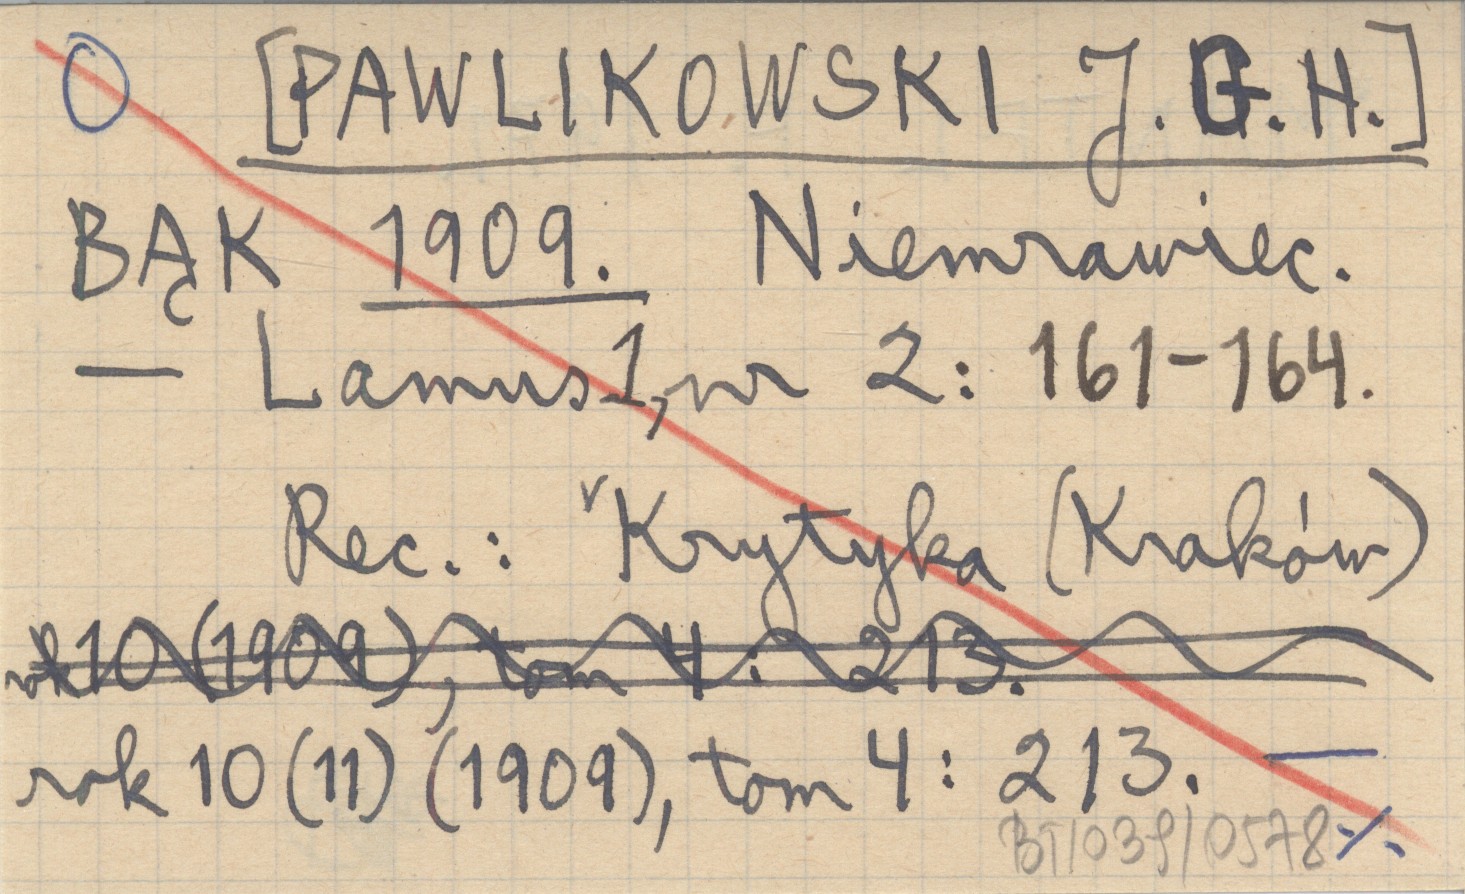 O [PAWLIKOWSKI J. G. H.]
BĄK 1909. Niemrawiec.
— Lamus 1, nr 2: 161-164.
Rec.: Krytyka (Kraków)
rok 10 (1909), tom 4: 213.
rok 10 (11) (1909), tom 4: 213. —
BT/039/0578